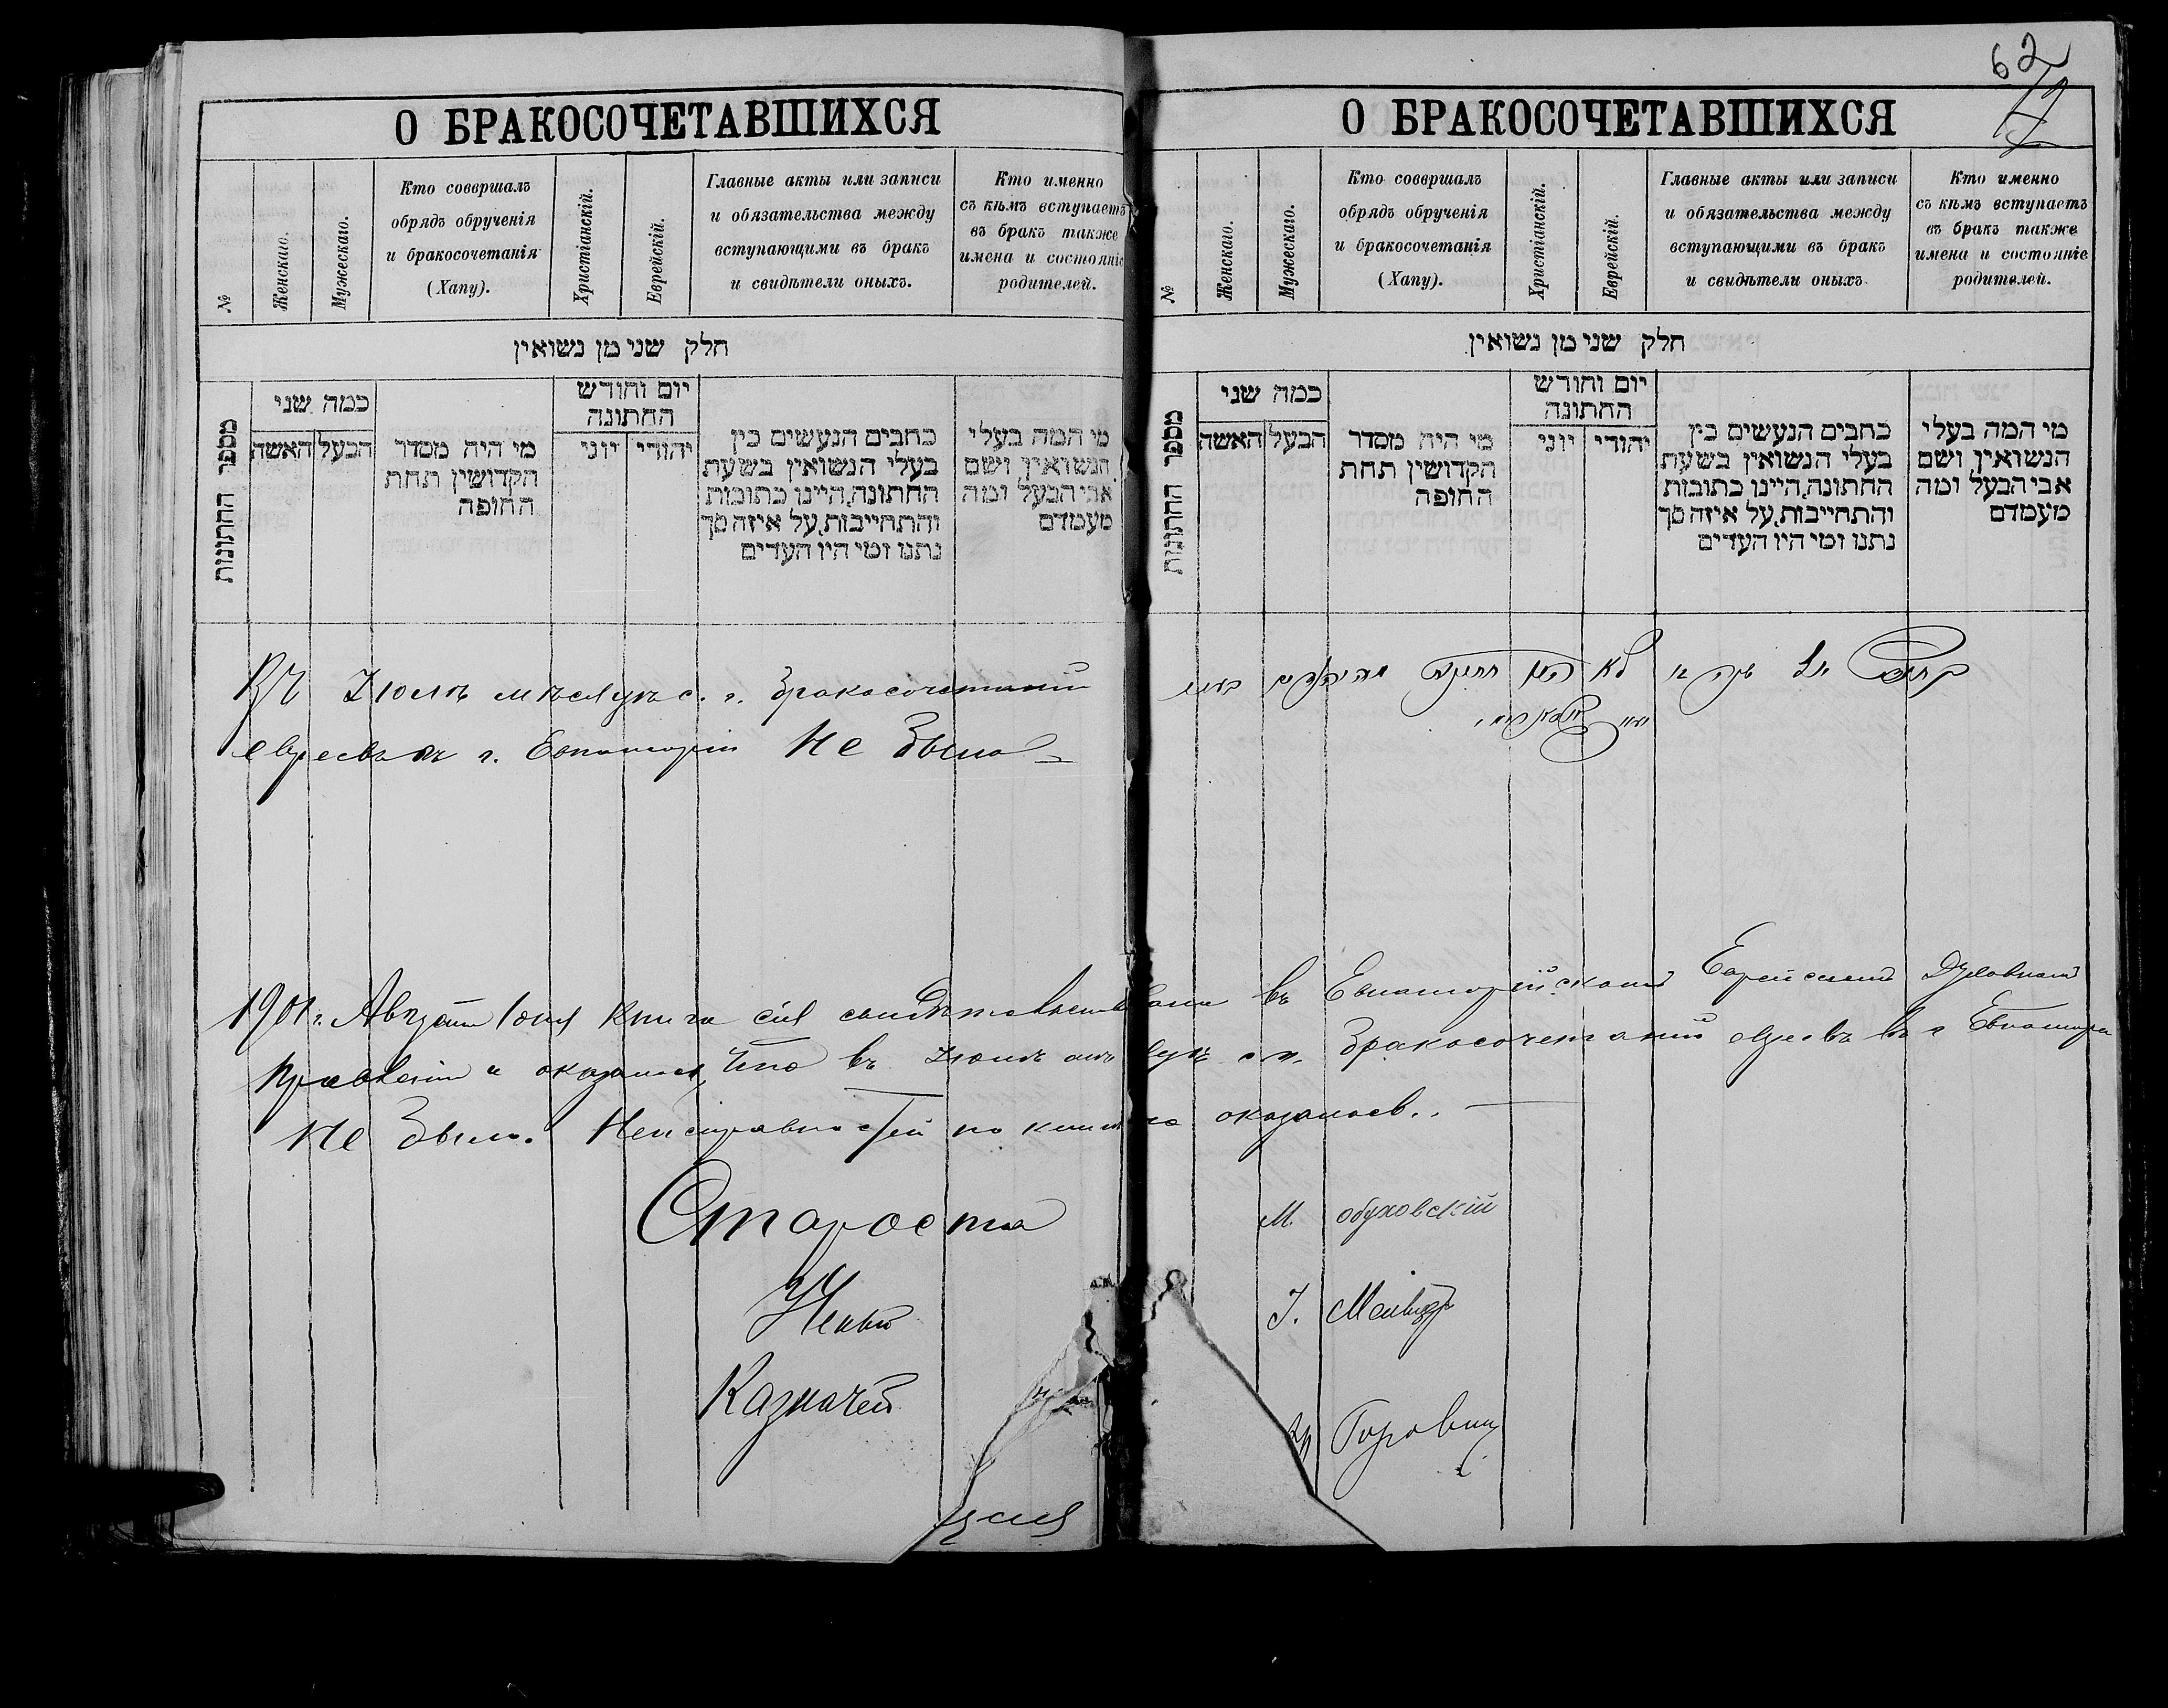 О БРАКОСОЧЕТАВШИХСЯ
№
Женскаго.
Мужескаго.
Кто совершалъ
обрядъ обрученія
и бракосочетанія
(Хапу).
Христіанскій.
Еврейскій.
Главные акты или записи
и обязательства между
вступающими въ бракъ
и свидѣтели оныхъ.
Кто именно
съ кѣмъ вступаетъ
въ бракъ также
имена и состояніе
родителей.
חלק שני מן נשואין
מספר החתונות
כמה שני
האשה
הבעל
מי היה מסדר
הקדושין תחת
החופה
יום וחודש
החתונה
יוני
יהודי
כתבים הנעשים בין
בעלי הנשואין בשעת
החתונה, היינו כתובות
והתחייבות, על איזה סך
נתנו ומי היו העדים
מי המה בעלי
הנשואין ושם
אבי הבעל ומה
מעמדם
Въ Іюлѣ мѣсяцѣ с. г. бракосочетаній
евреевъ въ г. Евпаторіи не было
62
О БРАКОСОЧЕТАВШИХСЯ
№
Женскаго.
Мужескаго.
Кто совершалъ
обрядъ обрученія
и бракосочетанія
(Хапу).
Христіанскій.
Еврейскій.
Главные акты или записи
и обязательства между
вступающими въ бракъ
и свидѣтели оныхъ.
Кто именно
съ кѣмъ вступаетъ
въ бракъ также
имена и состояніе
родителей.
חלק שני מן נשואין
מספר החתונות
כמה שני
האשה
הבעל
מי היה מסדר
הקדושין תחת
החופה
יום וחודש
החתונה
יוני
יהודי
כתבים הנעשים בין
בעלי הנשואין בשעת
החתונה, היינו כתובות
והתחייבות, על איזה סך
נתנו ומי היו העדים
מי המה בעלי
הנשואין ושם
אבי הבעל ומה
מעמדם
1901 г. Августа 1 дня книга сія свидѣтельствована въ Евпаторійскомъ Еврейскомъ Духовномъ
Правленіи и оказалось, что въ Іюлѣ мѣсяцѣ с. г. бракосочетаній евреевъ въ г. Евпаторіи
не было. Неисправностей по книгѣ не оказалось.
Староста М. Обуховскій
Ученый І.
Казначей Горовиц